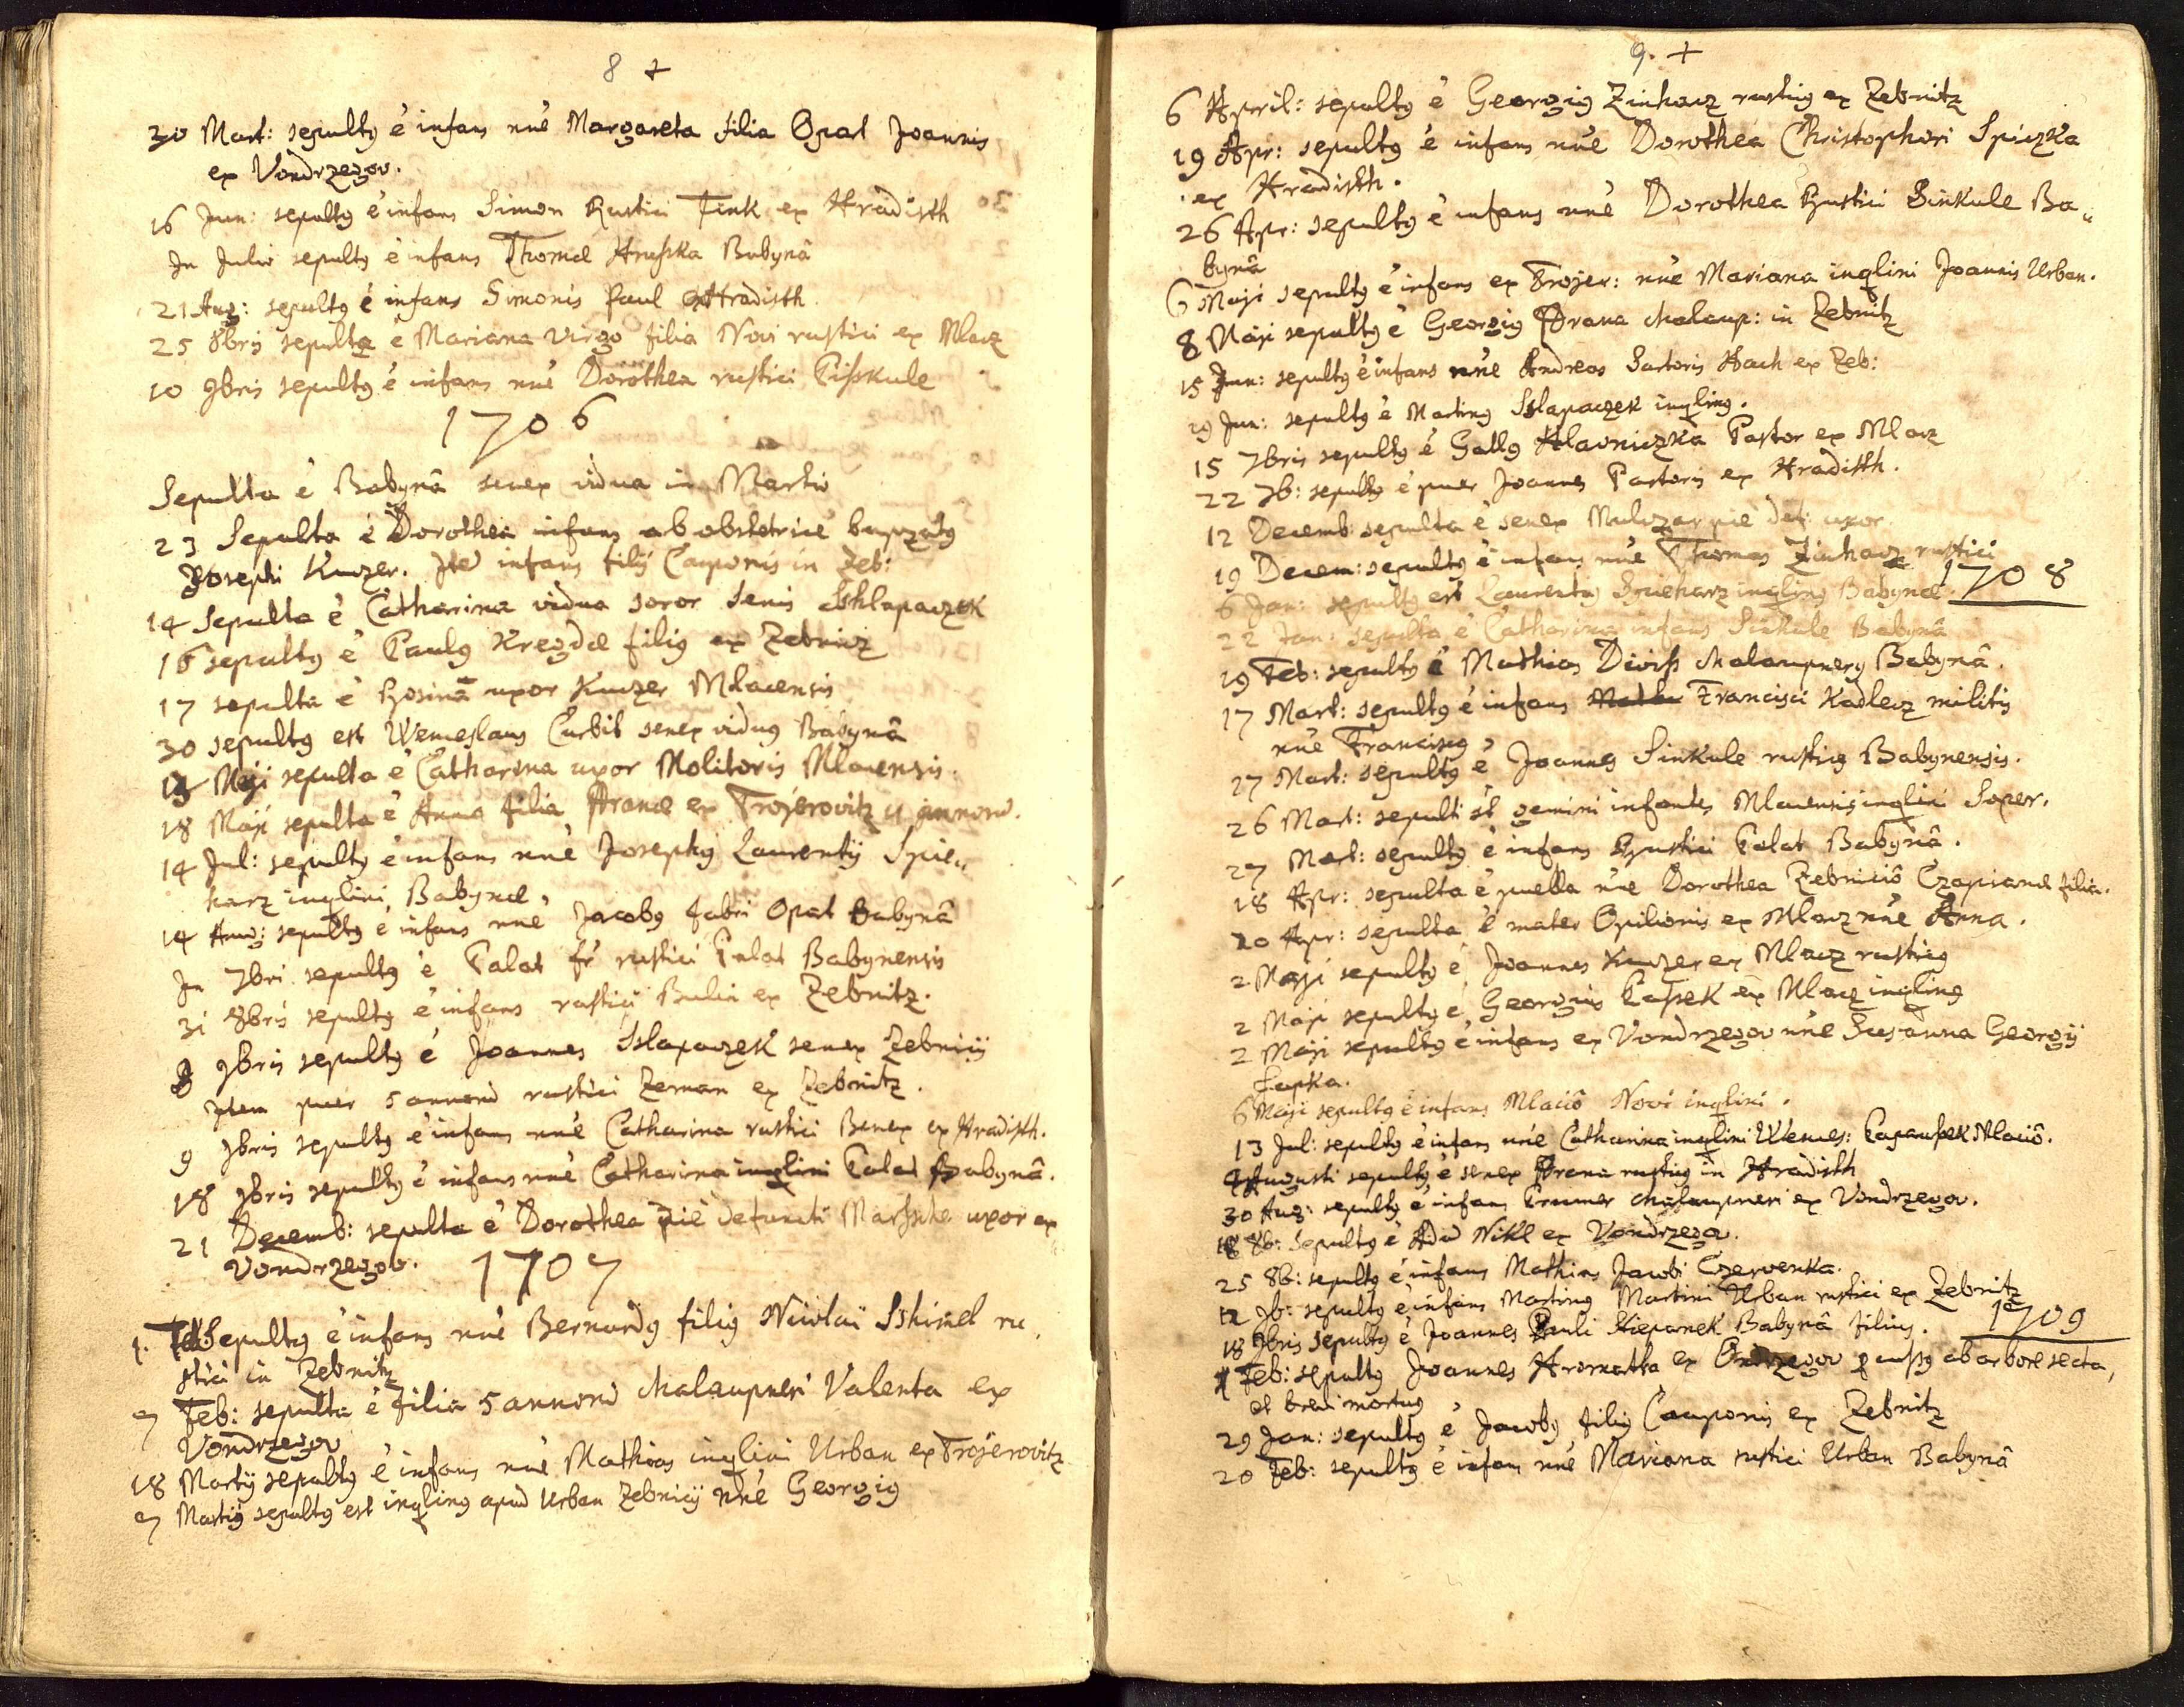 8 +
30 Mart: sepultg ē infans nnē Margareta filia Opat Joannis
ex Vondrzegov.
16 Jun: sepultg ē infans Simon Rustici Fink ex Hradisth
In Julio sepultg ē infans Thomæ Hrusska Babynâ
21 Aug: sepultg ē infans Simonis Paul ex Hradisth.
25 8bris sepulta ē Mariana virgo filia Novi rustici ex Mlacz
10 9bris sepultg ē infans nnē Dorothea rustici Pisskule
1706
Sepulta ē Babynâ senex vidua in Martio
23 Sepulta ē Dorothea infans ab obstetrice
Josephi Kuczer. Itē infans filij Cauponis in Zeb:
14 Sepulta ē Catharina vidua soror senis Sshlapaczek
16 sepultg ē Paulg Kregdæ filig ex Zebnicz
17 sepulta ē Rosina uxor Kuczer Mlacensis
30 sepultg est Wenceslaus Curbit senex vidug Babynâ
13 Maji sepulta ē Catharina uxor Molitoris Mlacensis.
18 Maji sepulta ē Anna filia Vranæ ex Trojerovitz 11 annorū.
14 Jul: sepultg ē infans nnē Josephg Laurentij Spie„
harz inqlini, Babynæ.
14 Aug: sepultg ē infans nnē Jacobg fabri Opat Babynâ
In 7bri sepultg ē Palat fr rustici Palat Babynensis
31 8bris sepultg ē infans rustici Bulin ex Zebnitz.
8 9bris sepultg ē Joannes Sslapaczek senex Zebnicij
Item puer 5 annorū rustici Zeman ex Zebnitz.
9 9bris sepultg ē infans nnē Catharina rustici Benex ex Hradisth.
18 9bris sepultg ē infans nnē Catharina inqlini Palat Babynâ.
21 Decemb: sepulta ē Dorothea piē defuncti Marsshe uxor ex
Vondrzegov.
1707
1. Feb Sepultg ē infans nnē Bernardg filig Nicolai Sshimel ru„
stici in Zebnitz
7 Feb: sepulta ē filia 5 annorū chalaupneri Valenta ex
Vondrzegov
18 Martij sepultg ē infans nnē Mathias inqlini Urban ex Trojerovitz
7 Martij sepultg est inqling apud Urban Zebnicij nnē Georgig
9. +
6 April: sepultg ē Georgig Zinhacz rustig ex Zebnitz
19 Apr: sepultg ē infans nnē Dorothea Christophori Spiczka
ex Hradisth.
26 Apr: sepultg ē infans nnē Dorothea Rustici Sinkule Ba„
bynâ
6 Maji sepultg ē infans ex Trojer: nnē Mariana inqlini Joannis Urban.
8 Maji sepultg ē Georgig Vrana chalaup: in Zebnitz
15 Jun: sepultg ē infans nnē Andreas Sartoris Hach ex Zeb:
29 Jun: sepultg ē Marting Sslapaczek inqling.
15 7bris sepultg ē Gallg Hlavniczka Pastor ex Mlacz
22 7b: sepultg ē puer Joannes Pastoris ex Hradisth.
12 Decemb: sepulta ē senex Mulczar piē def: uxor
19 Decem: sepultg ē infans nnē Thomas Zinhacz rustici
1708
6 Jan: sepultg est Laurentg Spieharz inqling Babynæ.
22 Jan: sepulta ē Catharina infans Sinkule Babynâ
19 Feb: sepultg ē Mathias Diviss chalaupnerg Babynâ.
17 Mart: sepultg ē infans Francisci Kadlecz militis
nnē Franciscg
27 Mart: sepultg ē Joannes Sinkule rustig Babynensis.
26 Mart: sepulti st gemini infantes Mlacensis inqlini Soper.
27 Mart: sepultg ē infans Rustici Palat Babynâ.
18 Apr: sepulta ē puella nnē Dorothea Zebniciô Czapianæ filia.
20 Apr: sepulta ē mater Opilionis ex Mlacz nnē Anna.
2 Maji sepultg ē Joannes Kuczer ex Mlacz rustig
2 Maji sepultg ē Georgius Passek ex Mlacz inqling
2 Maji sepultg ē infans ex Vondrzegov nnē Susanna Georgij
Supka.
6 Maji sepultg ē infans Mlaciô Novi inqlini.
13 Jul: sepultg ē infans nnē Catharina inqlini Wences: Papaussek Mlaciô.
Augusti sepultg ē senex Vrana rustig in Hradisth
30 Aug: sepultg ē infans Prumer chalaupneri ex Vondrzegov.
18 8b: Sepultg ē Adā Nikl ex Vondrzegov.
25 8b: sepultg ē infans Mathias Jacobi Czervenka.
12 9b: sepultg ē infans Marting Martini Urban rustici ex Zebnitz
18 9bris sepultg ē Joannes Pauli Kiepanek Babynâ filius.
1709
Feb: sepultg Joannes Hromatka ex Ondrzegov p ab arbore secta,
et brevi mortug
29 Jan: sepultg ē Jacobg filig Cauponis ex Zebnitz
20 Feb: sepultg ē infans nnē Mariana rustici Urban Babynâ